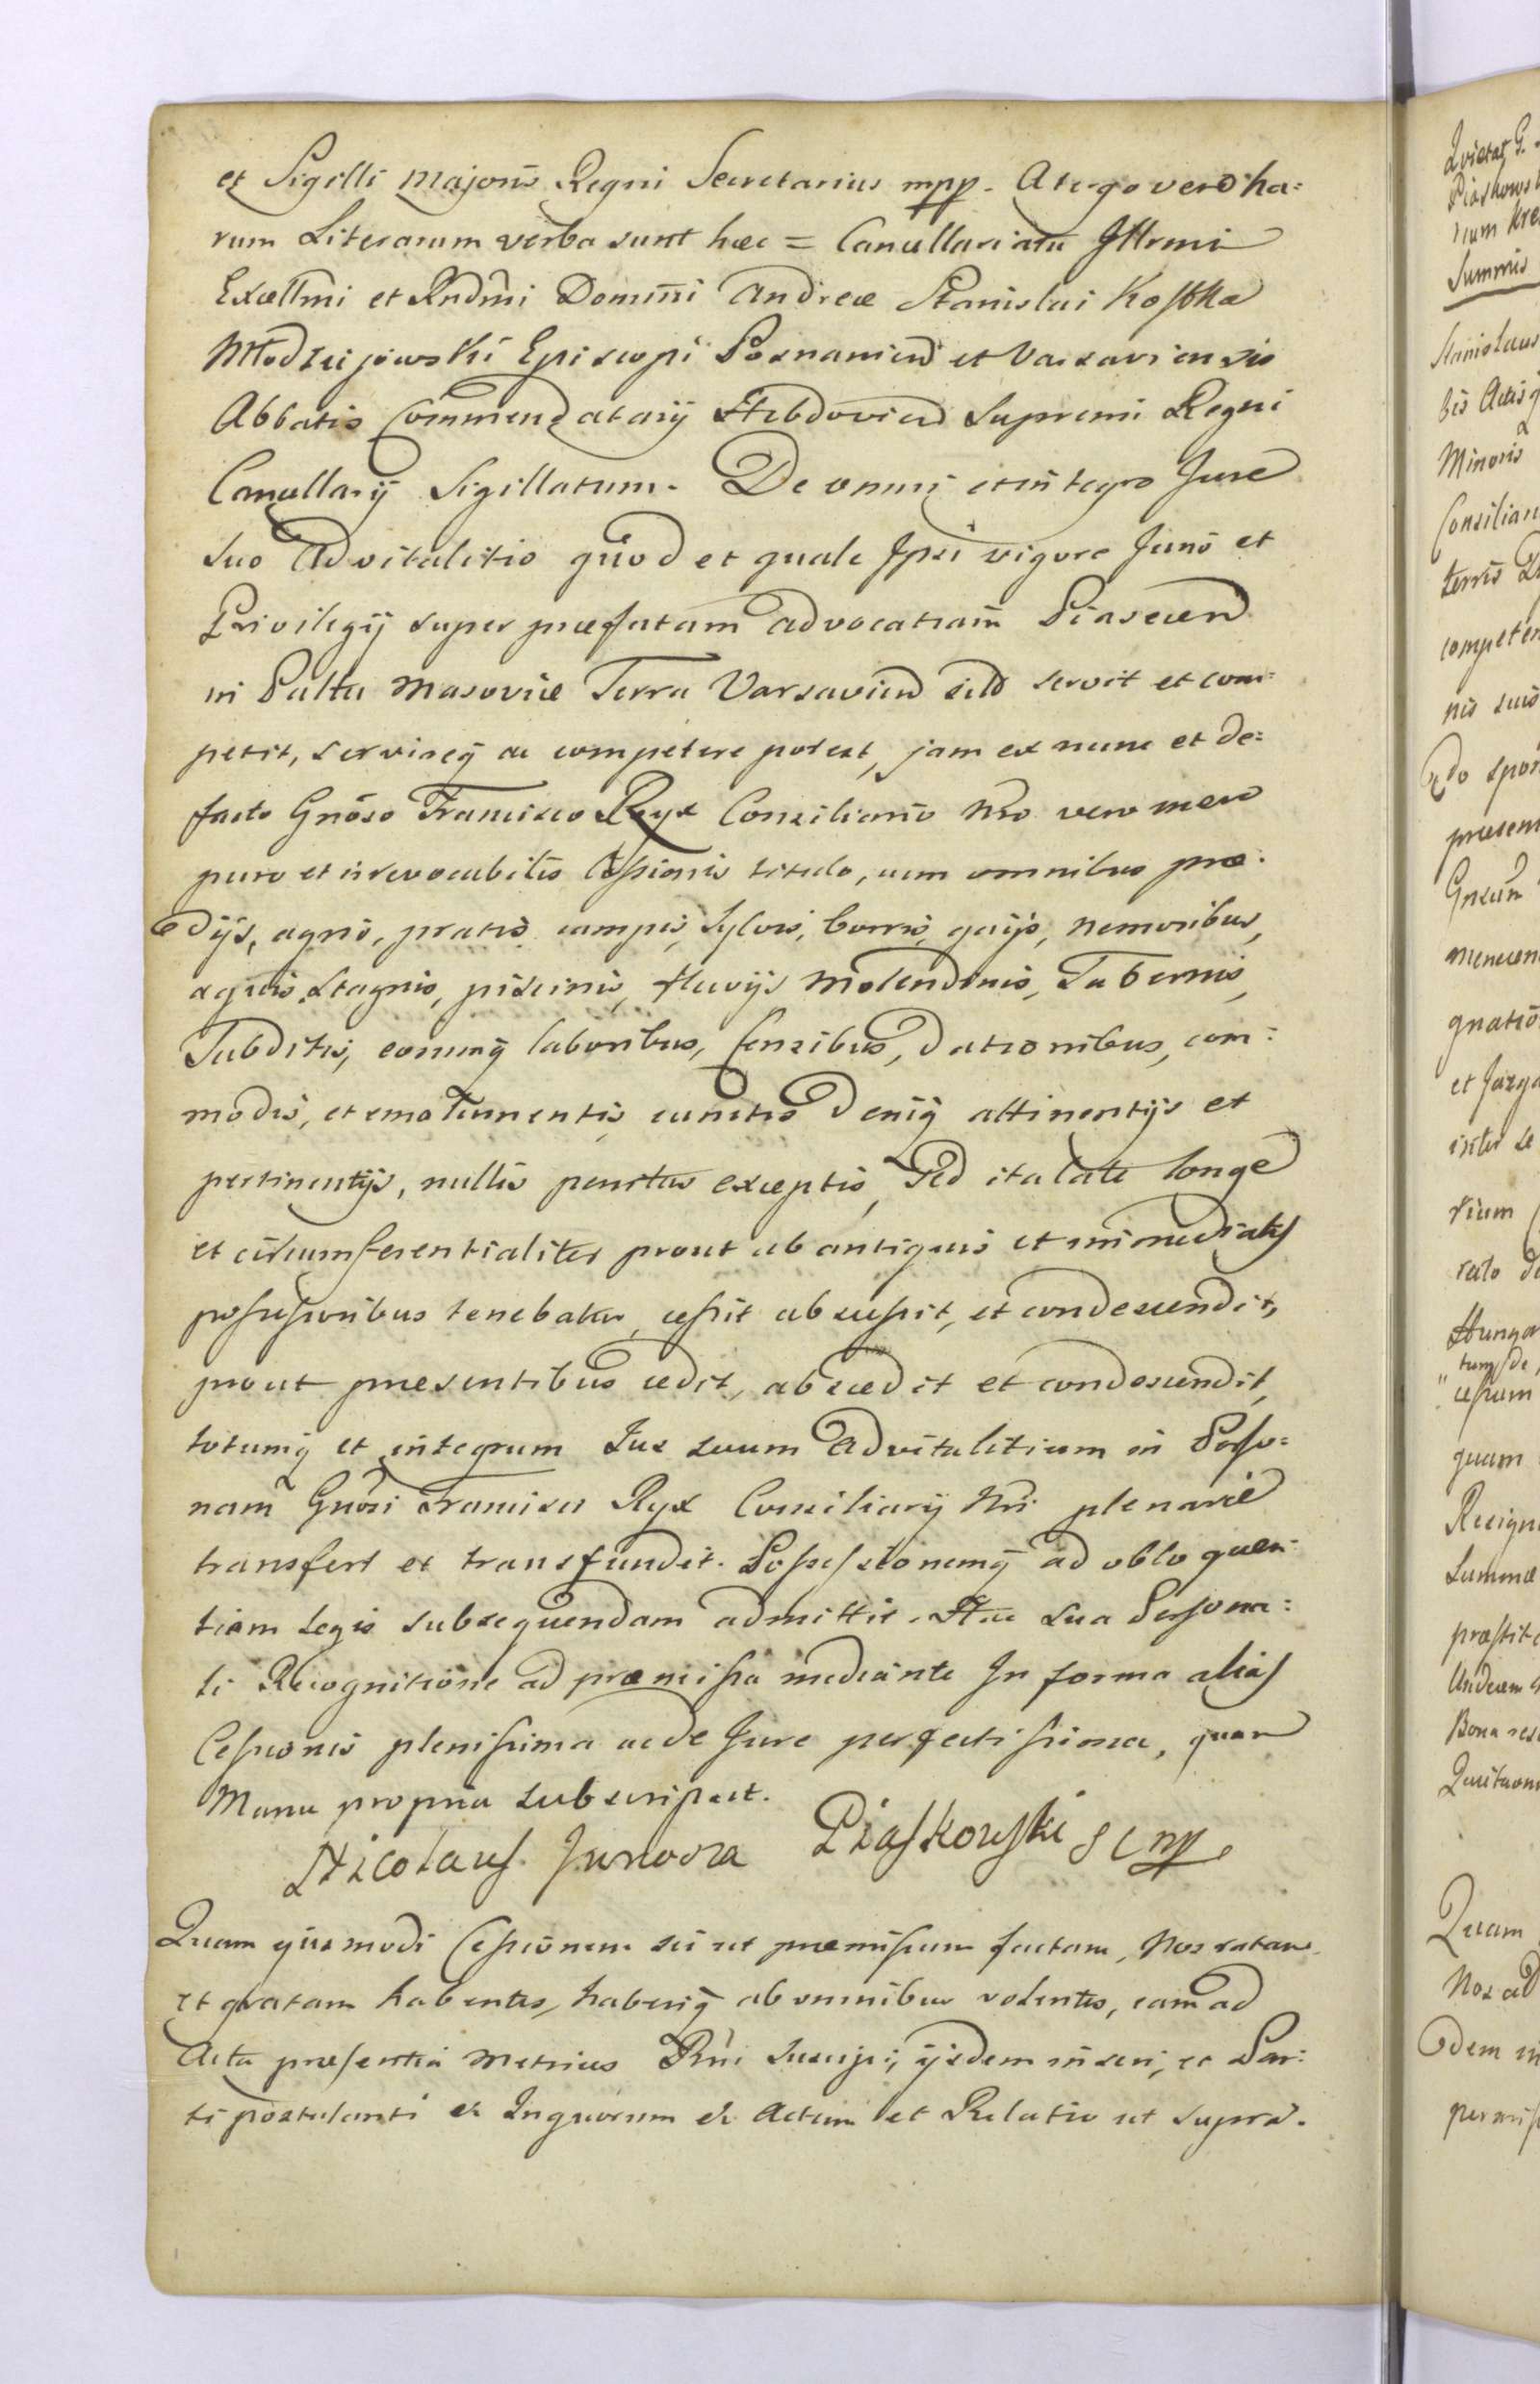 et Sigilli Majoris Regni Secretarius mpp. A tergo vero ha=
rum Literarum verba sunt hæc = Cancellariatu Illrmi
Excellmi et Rndmi Domini Andreæ Stanislai Kostka
Młodziejowski Episcopi Posnanien et Varsaviensis
Abbatis Commendatarij Hebdovien Supremi Regni
Cancellarij Sigillatum. De omni et integro Jure
suo Advitalitio quod et quale Ipsi vigore Juris et
Privilegij super præfatam advocatiam Piasecen
in Paltu Masoviæ Terra Varsavien servit et com=
petit, servireq ac competere potest, jam ex nunc et de=
facto Gnoso Francisco Ryx Consiliario Nro vero mero
puro et irrevocabilis Cessionis titulo, cum omnibus præ=
dijs, agris, pratis campis, sylvis, borris, gaijs, nemoribus,
aquis, stagnis, piscinis, fluvijs Molendinis, Tabernis,
Subditis, eorumq laboribus, Censibus, Dationibus, com=
modis, et emolumentis cunctis deniq attinentijs et
pertinentijs, nullis penitus exceptis, Sed ita late longe
et circumferentialiter prout ab antiquis et immediatis
possessoribus tenebatur, cessit abscessit, et condescendit,
prout præsentibus cedit, abscedit et condescendit,
totumq et integrum Jus suum Advitalitium in Perso=
nam Gnosi Francisci Ryx Consiliarij Nri plenarie
transfert et transfundit. Possessionemq ad obloquen=
tiam Legis subsequendam admittit. Hac sua Persona=
li Recognitione ad præmissa mediante In forma alias
Cessionis plenissima ac de Jure perfectissima, quam
Manu propria subscripsit.
Nicolaus Junosza Piaskowski S C mpp
Quam ejusmodi Cessionem sic ut præmissum factam, Nos ratam
et gratam habentes, haberiq ab omnibus volentes, eam ad
Acta præsentia Metrices Rni suscipi, ijsdem inseri, et Par=
ti postulanti ex Inquorum et Actum et Relatio ut supra.
Quietat G.
Piaskows
Summis
Stanislaus
bis Actis
Minoris
Consiliar
terris
competen
nis suis
præsen
et Jazg
inter se
rium
Hungar
cessum
quam
Resign
Summæ
præstit
Undecem
Bona
Quam
Nos ad
dem in
permiss